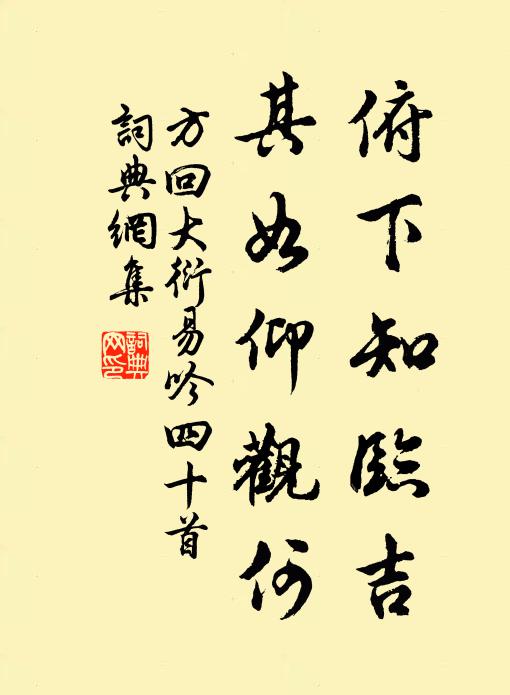 俯下知臨吉
其如仰觀何
方回大衍易吟四十首
詞典網集
詞典
网印